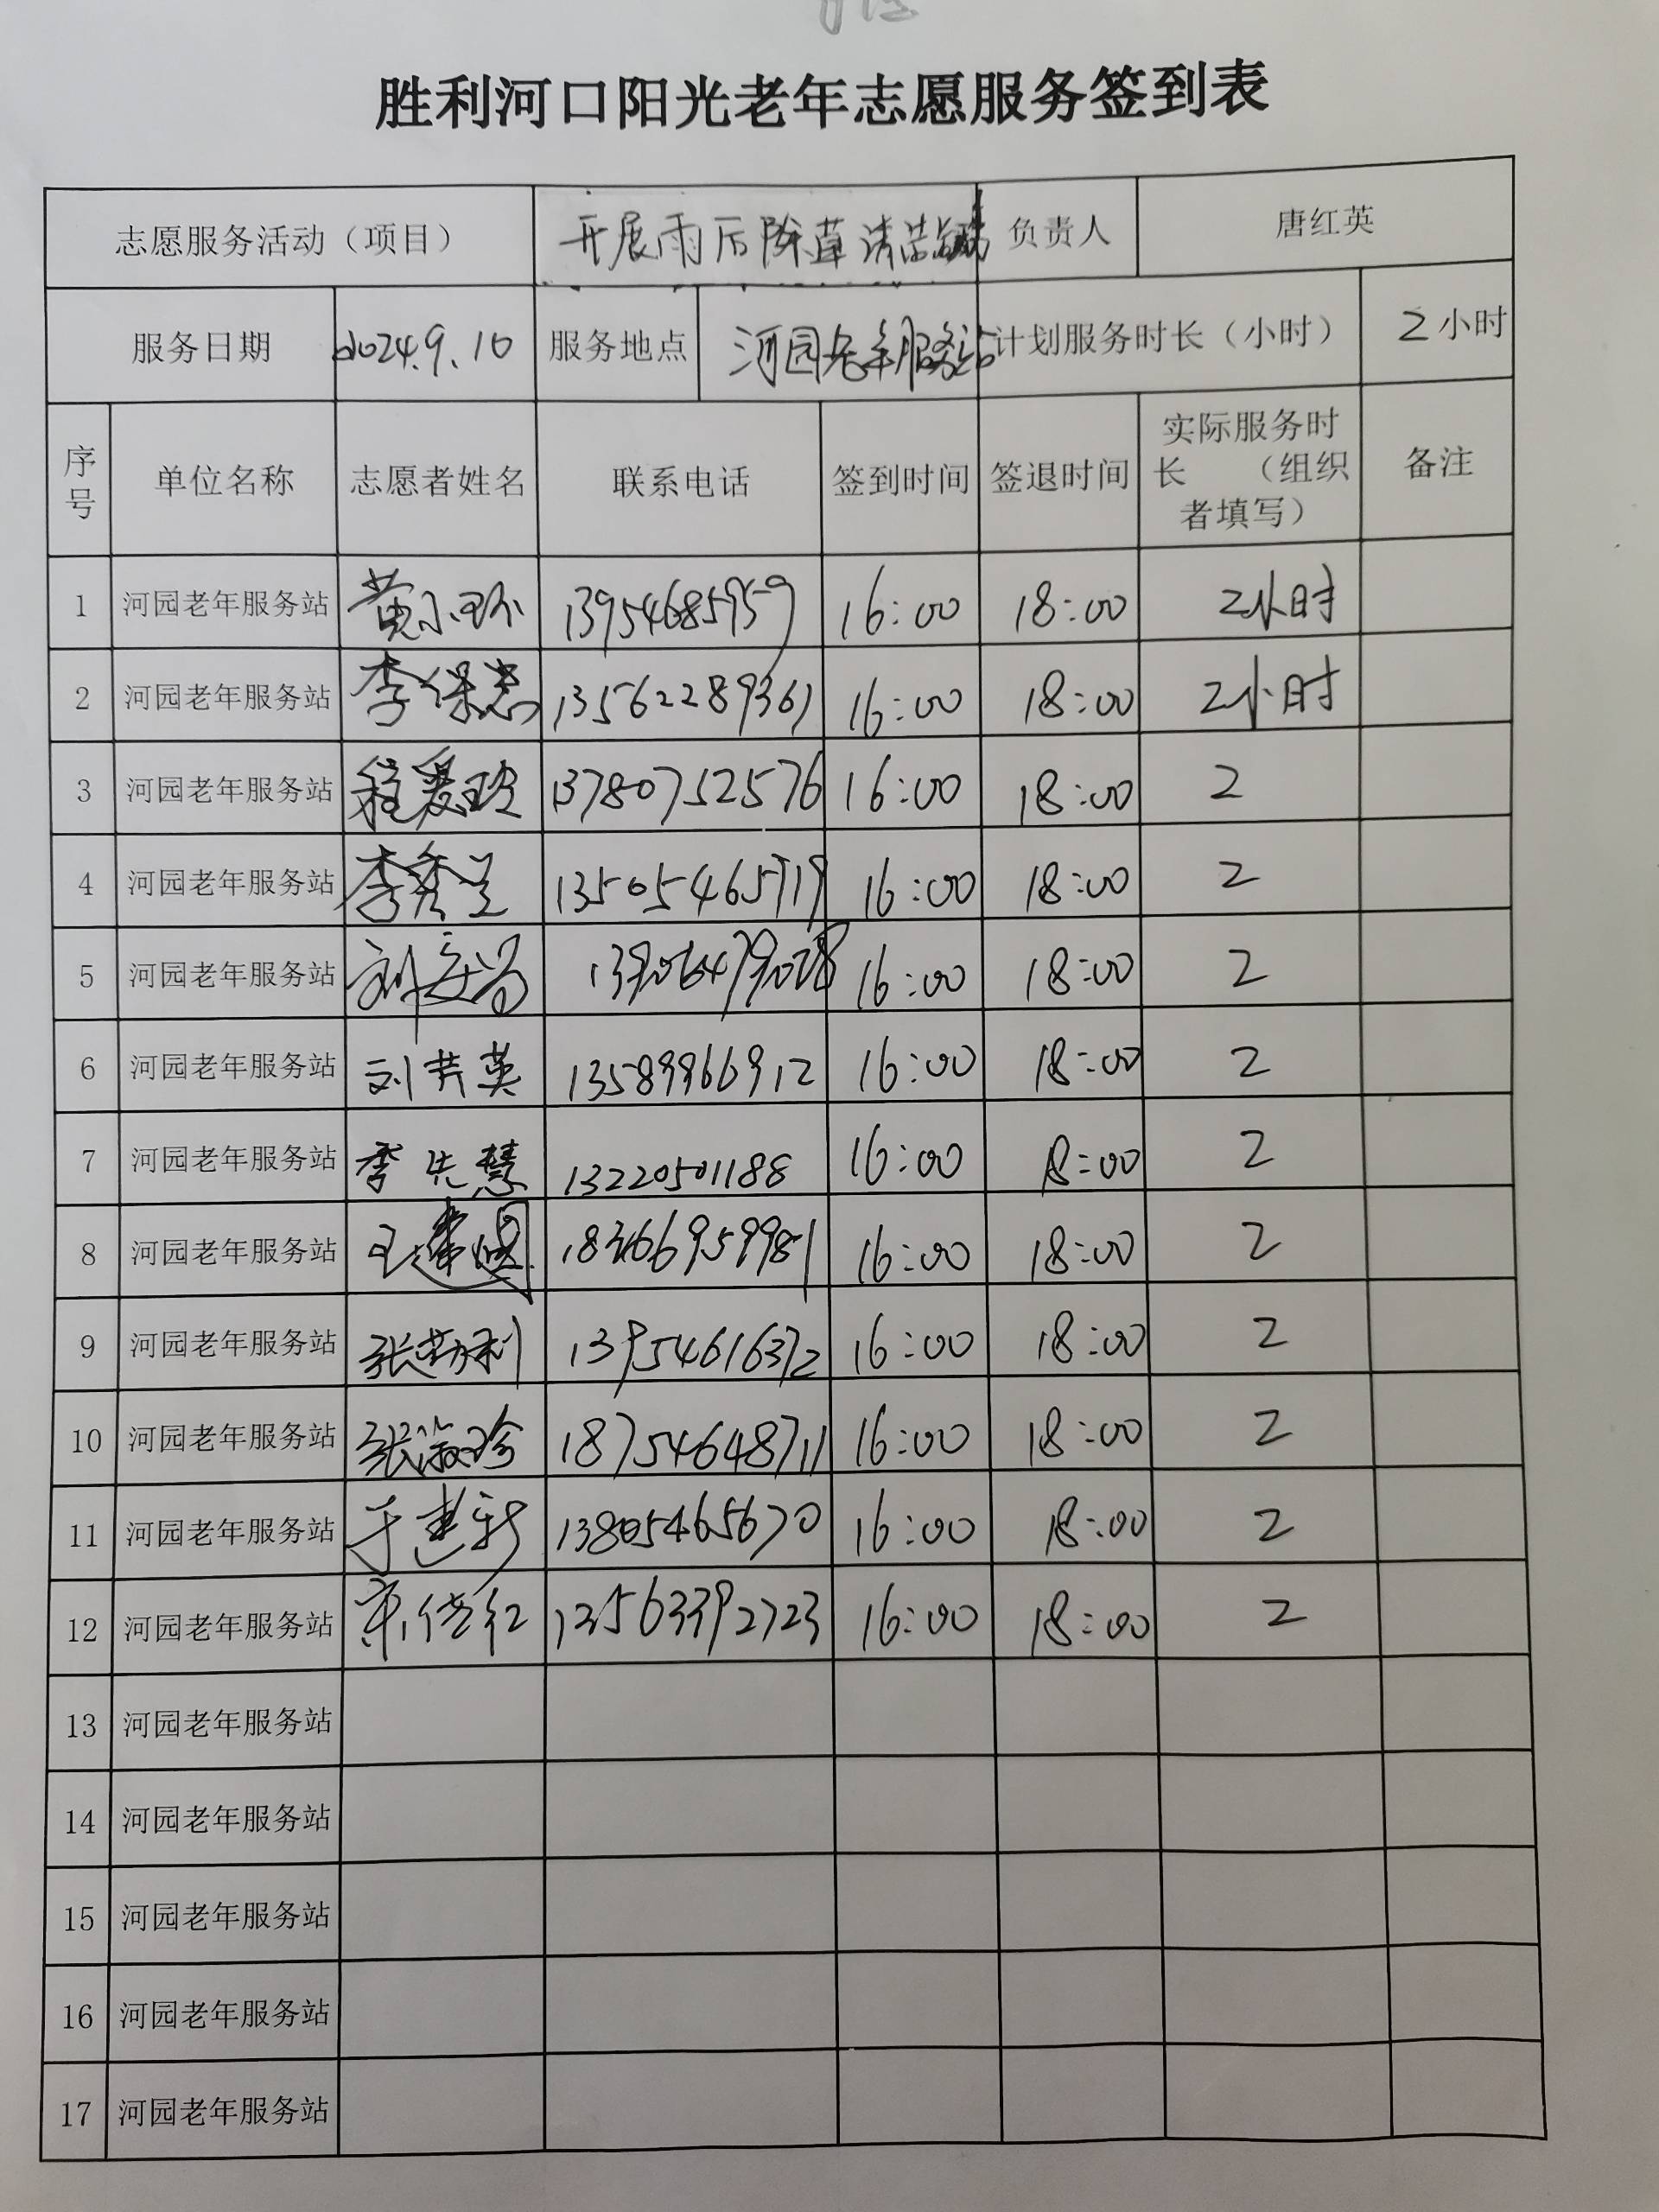 胜利河口阳光老年志愿服务签到表
志愿服务活动（项目） 开展雨后除草清洁 负责人 唐红英
服务日期 2024.9.10 服务地点 河园老年服务站 计划服务时长（小时） 2小时
序号 单位名称 志愿者姓名 联系电话 签到时间 签退时间 实际服务时长 （组织者填写） 备注
1 河园老年服务站 黄小环 13954685959 16:00 18:00 2小时
2 河园老年服务站 李保忠 13562289361 16:00 18:00 2小时
3 河园老年服务站 程爱玲 13780752576 16:00 18:00 2
4 河园老年服务站 李秀兰 13505465719 16:00 18:00 2
5 河园老年服务站 刘 13906479028 16:00 18:00 2
6 河园老年服务站 刘芹英 13589966912 16:00 18:00 2
7 河园老年服务站 李先慧 13220501188 16:00 18:00 2
8 河园老年服务站 王 18366959981 16:00 18:00 2
9 河园老年服务站 张勤利 13954616372 16:00 18:00 2
10 河园老年服务站 张淑珍 18754648711 16:00 18:00 2
11 河园老年服务站 于建新 13805465670 16:00 18:00 2
12 河园老年服务站 13563392723 16:00 18:00 2
13 河园老年服务站
14 河园老年服务站
15 河园老年服务站
16 河园老年服务站
17 河园老年服务站